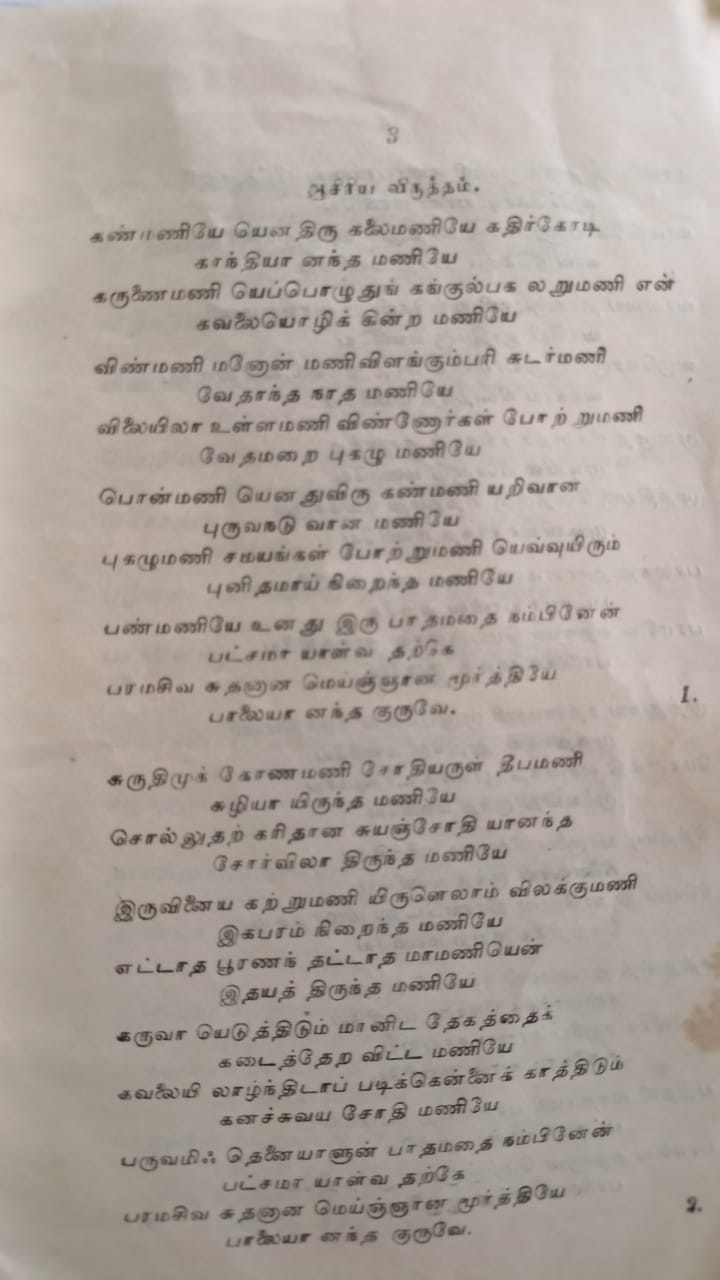 3
ஆசிரிய விருத்தம்.
கண்மணியே யென திரு கலைமணியே கதிர்கோடி
காந்தியா னந்த மணியே
கருணைமணி யெப்பொழுதுங் கங்குல்பக லறுமணி என்
கவலையொழிக் கின்ற மணியே
விண்மணி மனோன் மணிவிளங்கும்பரி சுடர்மணி
வேதாந்த நாத மணியே
விலையிலா உள்ளமணி விண்ணோர்கள் போற் றுமணி
வேதமறை புகழு மணியே
பொன்மணி யெனதுவிரு கண்மணி யறிவான
புருவநடு வான மணியே
புகழுமணி சமயங்கள் போற்றுமணி யெவ்வுயிரும்
புனிதமாய் நிறைந்த மணியே
பண்மணியே உனது இரு பாதமதை நம்பினேன்
பட்சமா யாள்வ தற்கே
பரமசிவ சுதனான மெய்ஞ்ஞான மூர்த்தியே
பாலையா னந்த குருவே. 1.
சுருதிமுக் கோணமணி சோதியருள் தீபமணி
சுழியா யிருந்த மணியே
சொல்லுதற் கரிதான சுயஞ்சோதி யானந்த
சோர்விலா திருந்த மணியே
இருவினைய கற்றுமணி யிருளெலாம் விலக்குமணி
இகபரம் நிறைந்த மணியே
எட்டாத பூரணந் தட்டாத மாமணியென்
இதயத் திருந்த மணியே
கருவா யெடுத்திடும் மானிட தேகத்தைக்
கடைத்தேற விட்ட மணியே
கவலையி லாழ்ந்திடாப் படிக்கென்னைக் காத்திடும்
கனச்சுவய சோதி மணியே
பருவமிஃ தெனையாளுன் பாதமதை நம்பினேன்
பட்சமா யாள்வ தற்கே
பரமசிவ சுதனான மெய்ஞ்ஞான மூர்த்தியே
பாலையா னந்த குருவே. 2.